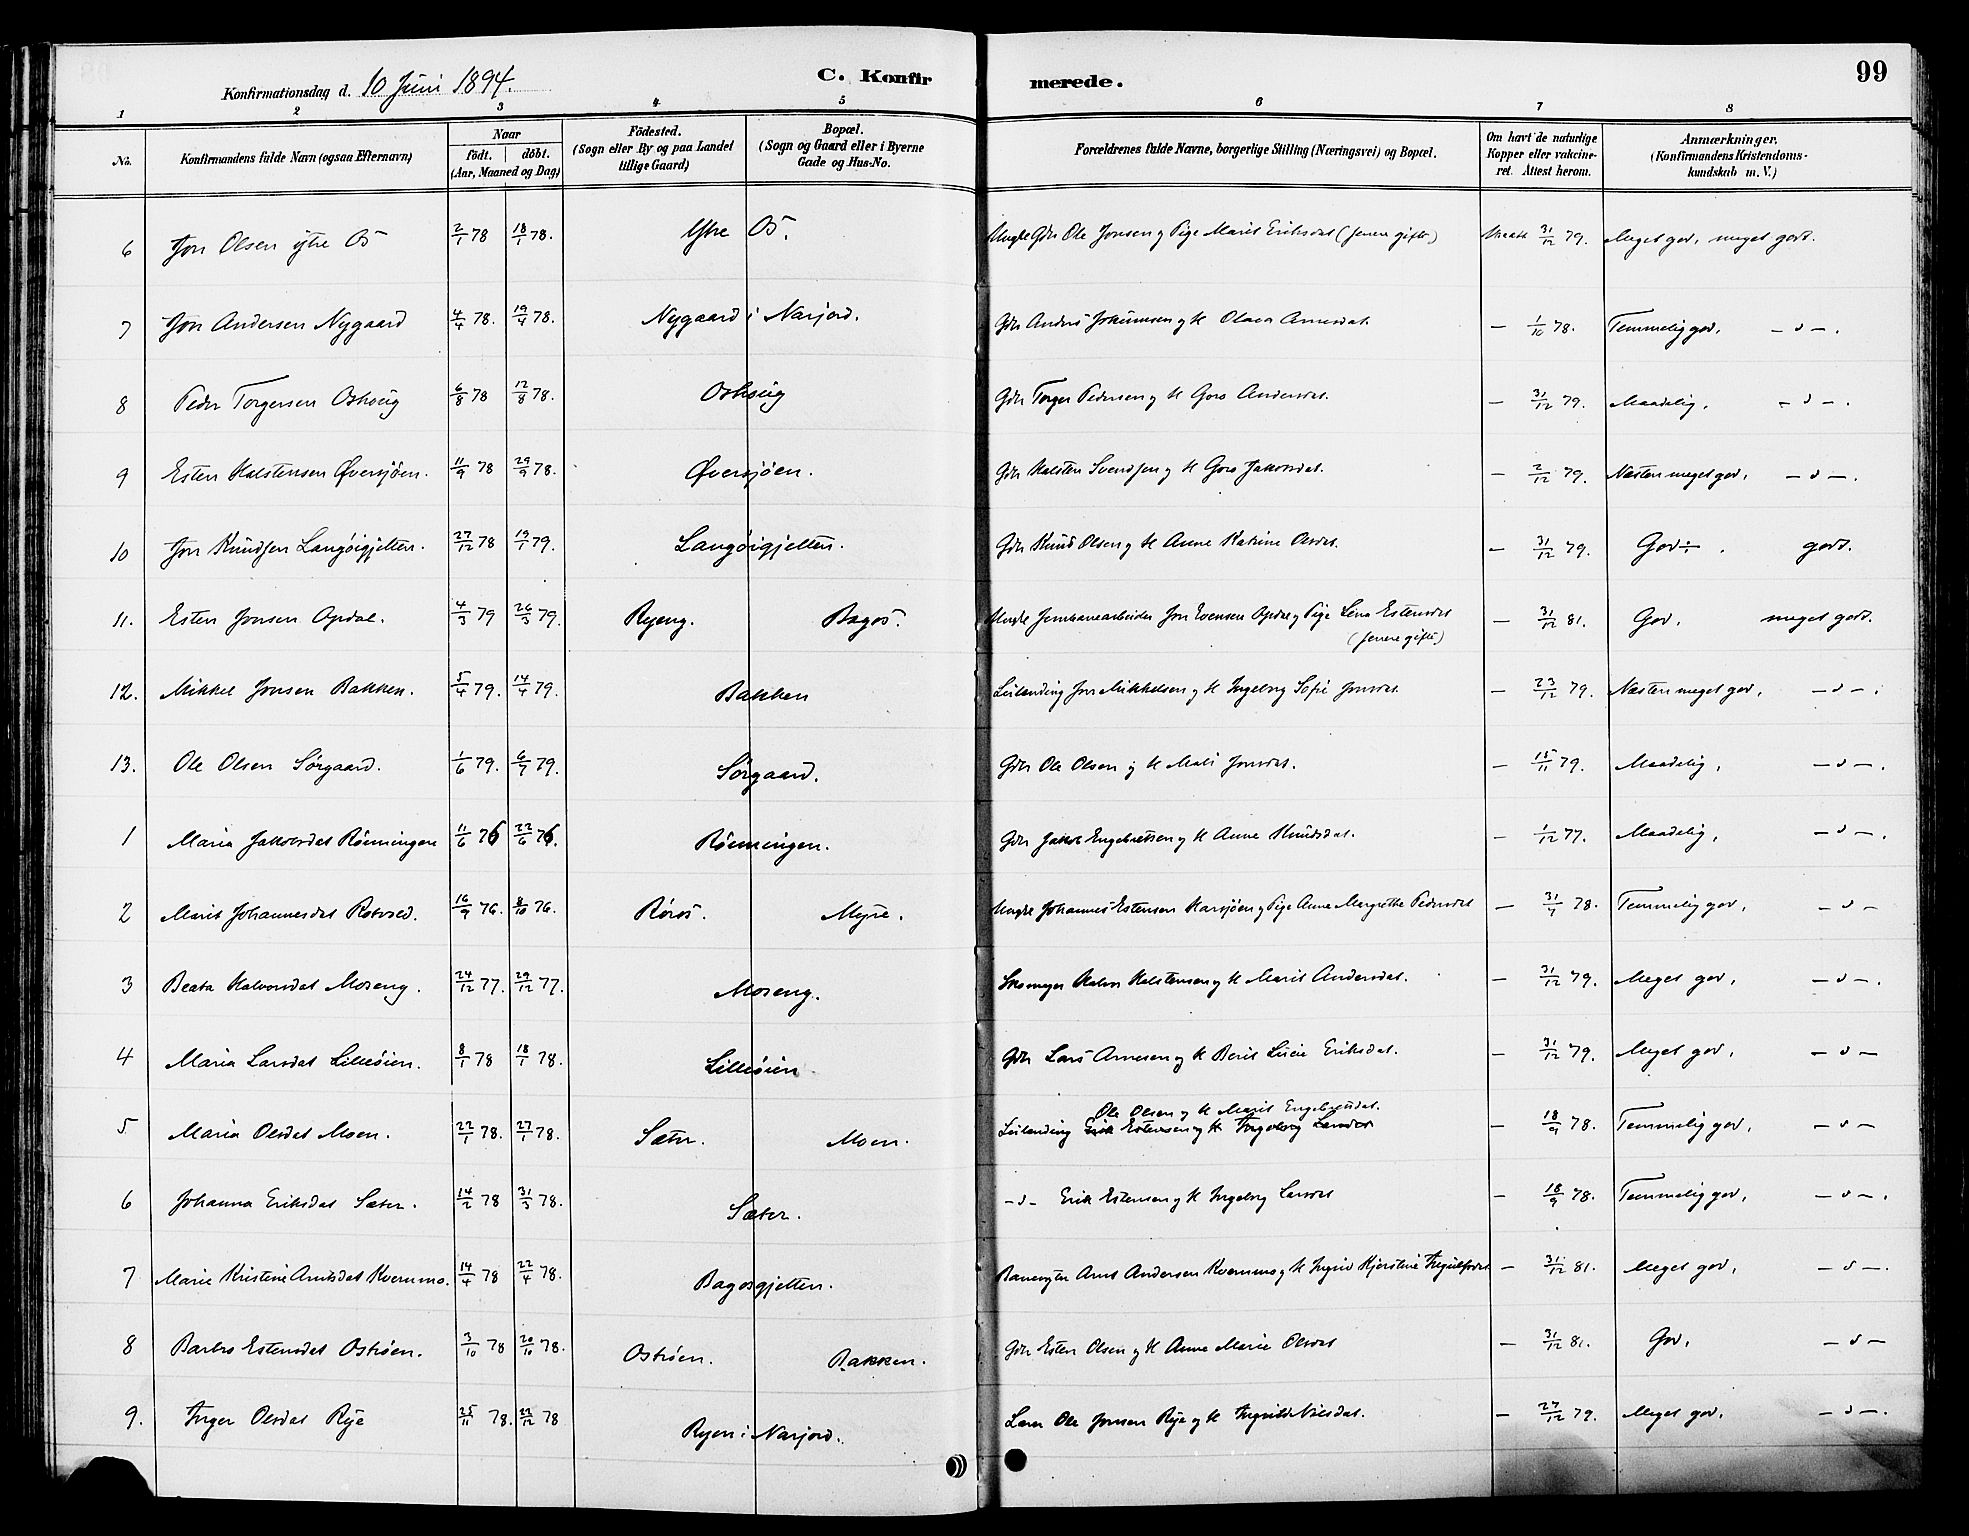 Konfirmationsdag d. 10 Juni 1894. C. Konfirmerede. 99
1 2 3 4 5 6 7 8
No. Konfirmandens fulde Navn (ogsaa Efternavn) Naar födt. döbt. (Aar, Maaned og Dag) Födested. (Sogn eller By og paa Landet tillige Gaard) Bopæl. (Sogn og Gaard eller i Byerne Gade og Hus-No. Forældrenes fulde Navne, borgerlige Stilling (Næringsvei) og Bopæl. Om havt de naturlige Kopper eller vakcineret. Attest herom. Anmærkninger. (Konfirmandens Kristendomskundskab m. V.)
6 Jon Olsen ytre Os 2/1 78 18/1 78. Ytre Os. Ungkr Gbr Ole Jonsen og Pige Marit Eriksdat (senere gifte) 31/12 79. Meget god, meget godt.
7 Jon Andersen Nygaard 4/4 78. 19/4 78. Nygaard i Narjord. Gbr Anders Johannesen og K Olava Arnesdat. — 1/10 78. Temmelig god, — " —.
8 Peder Torgersen Oshoug 6/8 78 12/8 78. Oshoug Gbr Torger Pedersen og K Goro Andersdat. — 31/12 79. Maadelig, — " —.
9 Esten Halstensen Øversjøen. 11/9 78 29/9 78. Øversjøen. Gbr Halsten Svendsen og K Goro Jakobsdat. — 2/12 79. Næsten meget god, — " —.
10 Jon Knudsen Langøigjelten. 27/12 78 19/1 79. Langøigjelten. Gbr Knud Olsen og K Anne Katrine Olsdat. — 31/12 79. God ÷. godt.
11. Esten Jonsen Opdal. 4/3 79 26/3 79. Ryeng. Bagos. Ungkr Jernbanearbeider Jon Evensen Opdal og Pige Lena Estensdat (senere gifte) — 31/12 81. God, meget godt.
12. Mikkel Jonsen Bakken. 5/4 79. 14/4 79. Bakken Leilending Jon Mikkelsen og K Ingeborg Sofie Jonsdat. — 23/12 79. Næsten meget god, — " —.
13. Ole Olsen Sørgaard. 1/6 79. 6/7 79. Sørgaard. Gbr Ole Olsen og K Mali Jonsdat. — 15/11 79. Maadelig, — " —.
1 Maria Jakobsdat Rønningen 11/6 76 22/6 76. Rønningen. Gbr Jakob Engebretsen og K Anne Knudsdat. — 1/12 77. Maadelig, — " —.
2 Marit Johannesdat Rotvold. 16/9 76. 8/10 76. Røros. Myre. Ungkr Johannes Estensen Narsjøen og Pige Anne Margrethe Pedersdat — 31/7 78. Temmelig god, — " —
3 Beata Halvorsdat Moseng. 24/12 77. 29/12 77. Moseng. Skomager Halvor Halstensen og K Marit Andersdat. — 31/12 79. Meget god, — " —.
4 Maria Larsdat Lilleøien. 8/1 78 18/1 78. Lilleøien. Gbr Lars Arnesen og K Berit Lucie Eriksdat. — 31/12 79. Meget god, — " —
5 Maria Olsdat Moen. 22/1 78. 27/1 78. Sæter. Moen. Leilending Ole Olsen og K Marit Engebretsdat. Erik Estensen og K Ingeborg Larsdat — 18/9 78. Temmelig god, — " —
6 Johanna Eriksdat Sæter. 14/2 78 31/3 78. Sæter. — " — Erik Estensen og K Ingeborg Larsdat — 18/9 78. Temmelig god, — " —.
7 Marie Kristine Arntsdat Kvernmo. 14/4 78 22/4 78. Bagosgjelten. Banevogter Arnt Andersen Kvernmo og K Ingrid Kjerstine Ingulfsdat — 31/12 81. Meget god, — " —.
8 Barbro Estensdat Ostrøen. 3/10 78 20/10 78. Ostrøen. Bakken. Gbr Esten Olsen og K Anne Marie Olsdat — 31/12 81. God, — " —
9. Inger Olsdat Rye 25/11 78. 22/12 78 Ryen i Narjord. Ole Jonsen Rye og K Ingrid Nilsdat. — 27/12 79. Meget god, — " —.